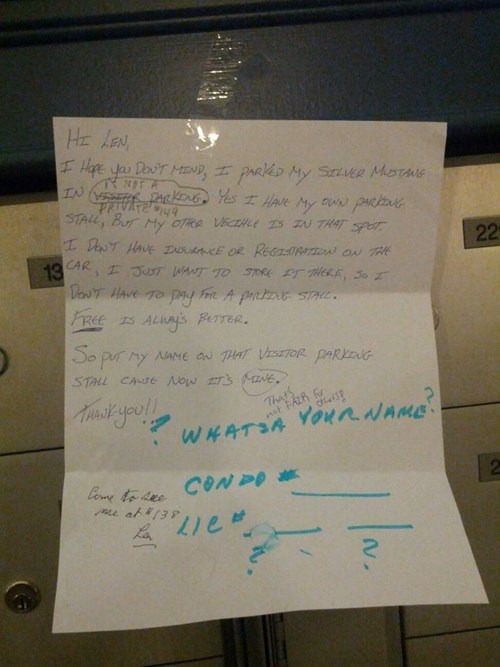 HI LEN,
I HOPE YOU DON'T MIND, I PARKED MY SILVER MUSTANG
IS NOT A
IN VISITOR PARKING. YES I HAVE MY OWN PARKING
PRIVATE #149
STALL, BUT MY OTHER VECIHLE IS IN THAT SPOT.
I DON'T HAVE INSURANCE OR REGISTRATION ON THE
CAR, I JUST WANT TO STORE IT THERE, SO I
DON'T HAVE TO PAY FOR A PARKING STALL.
FREE IS ALWAYS BETTER.
SO PUT MY NAME ON THAT VISITOR PARKING
STALL CAUSE NOW IT'S MINE.
That's
not FAIR for
others!
THANK-YOU!!
? WHATSA YOUR NAME?
CONDO #
Come to see
me at #138
Len
LIC #
? ?
13
22
2